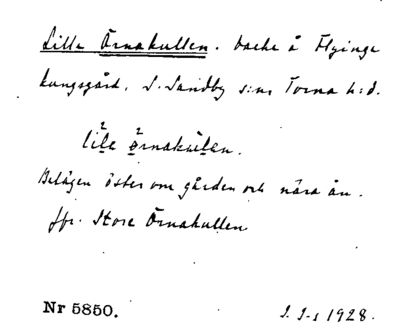 Lille Örnakullen. backe å Flyinge
kungsgård, S. Sandby s:n, Torna h:d.
lile örnakulen.
Belägen öster om gården och nära ån.
Jfr. Stora Örnakullen
Nr 5850.
1928.